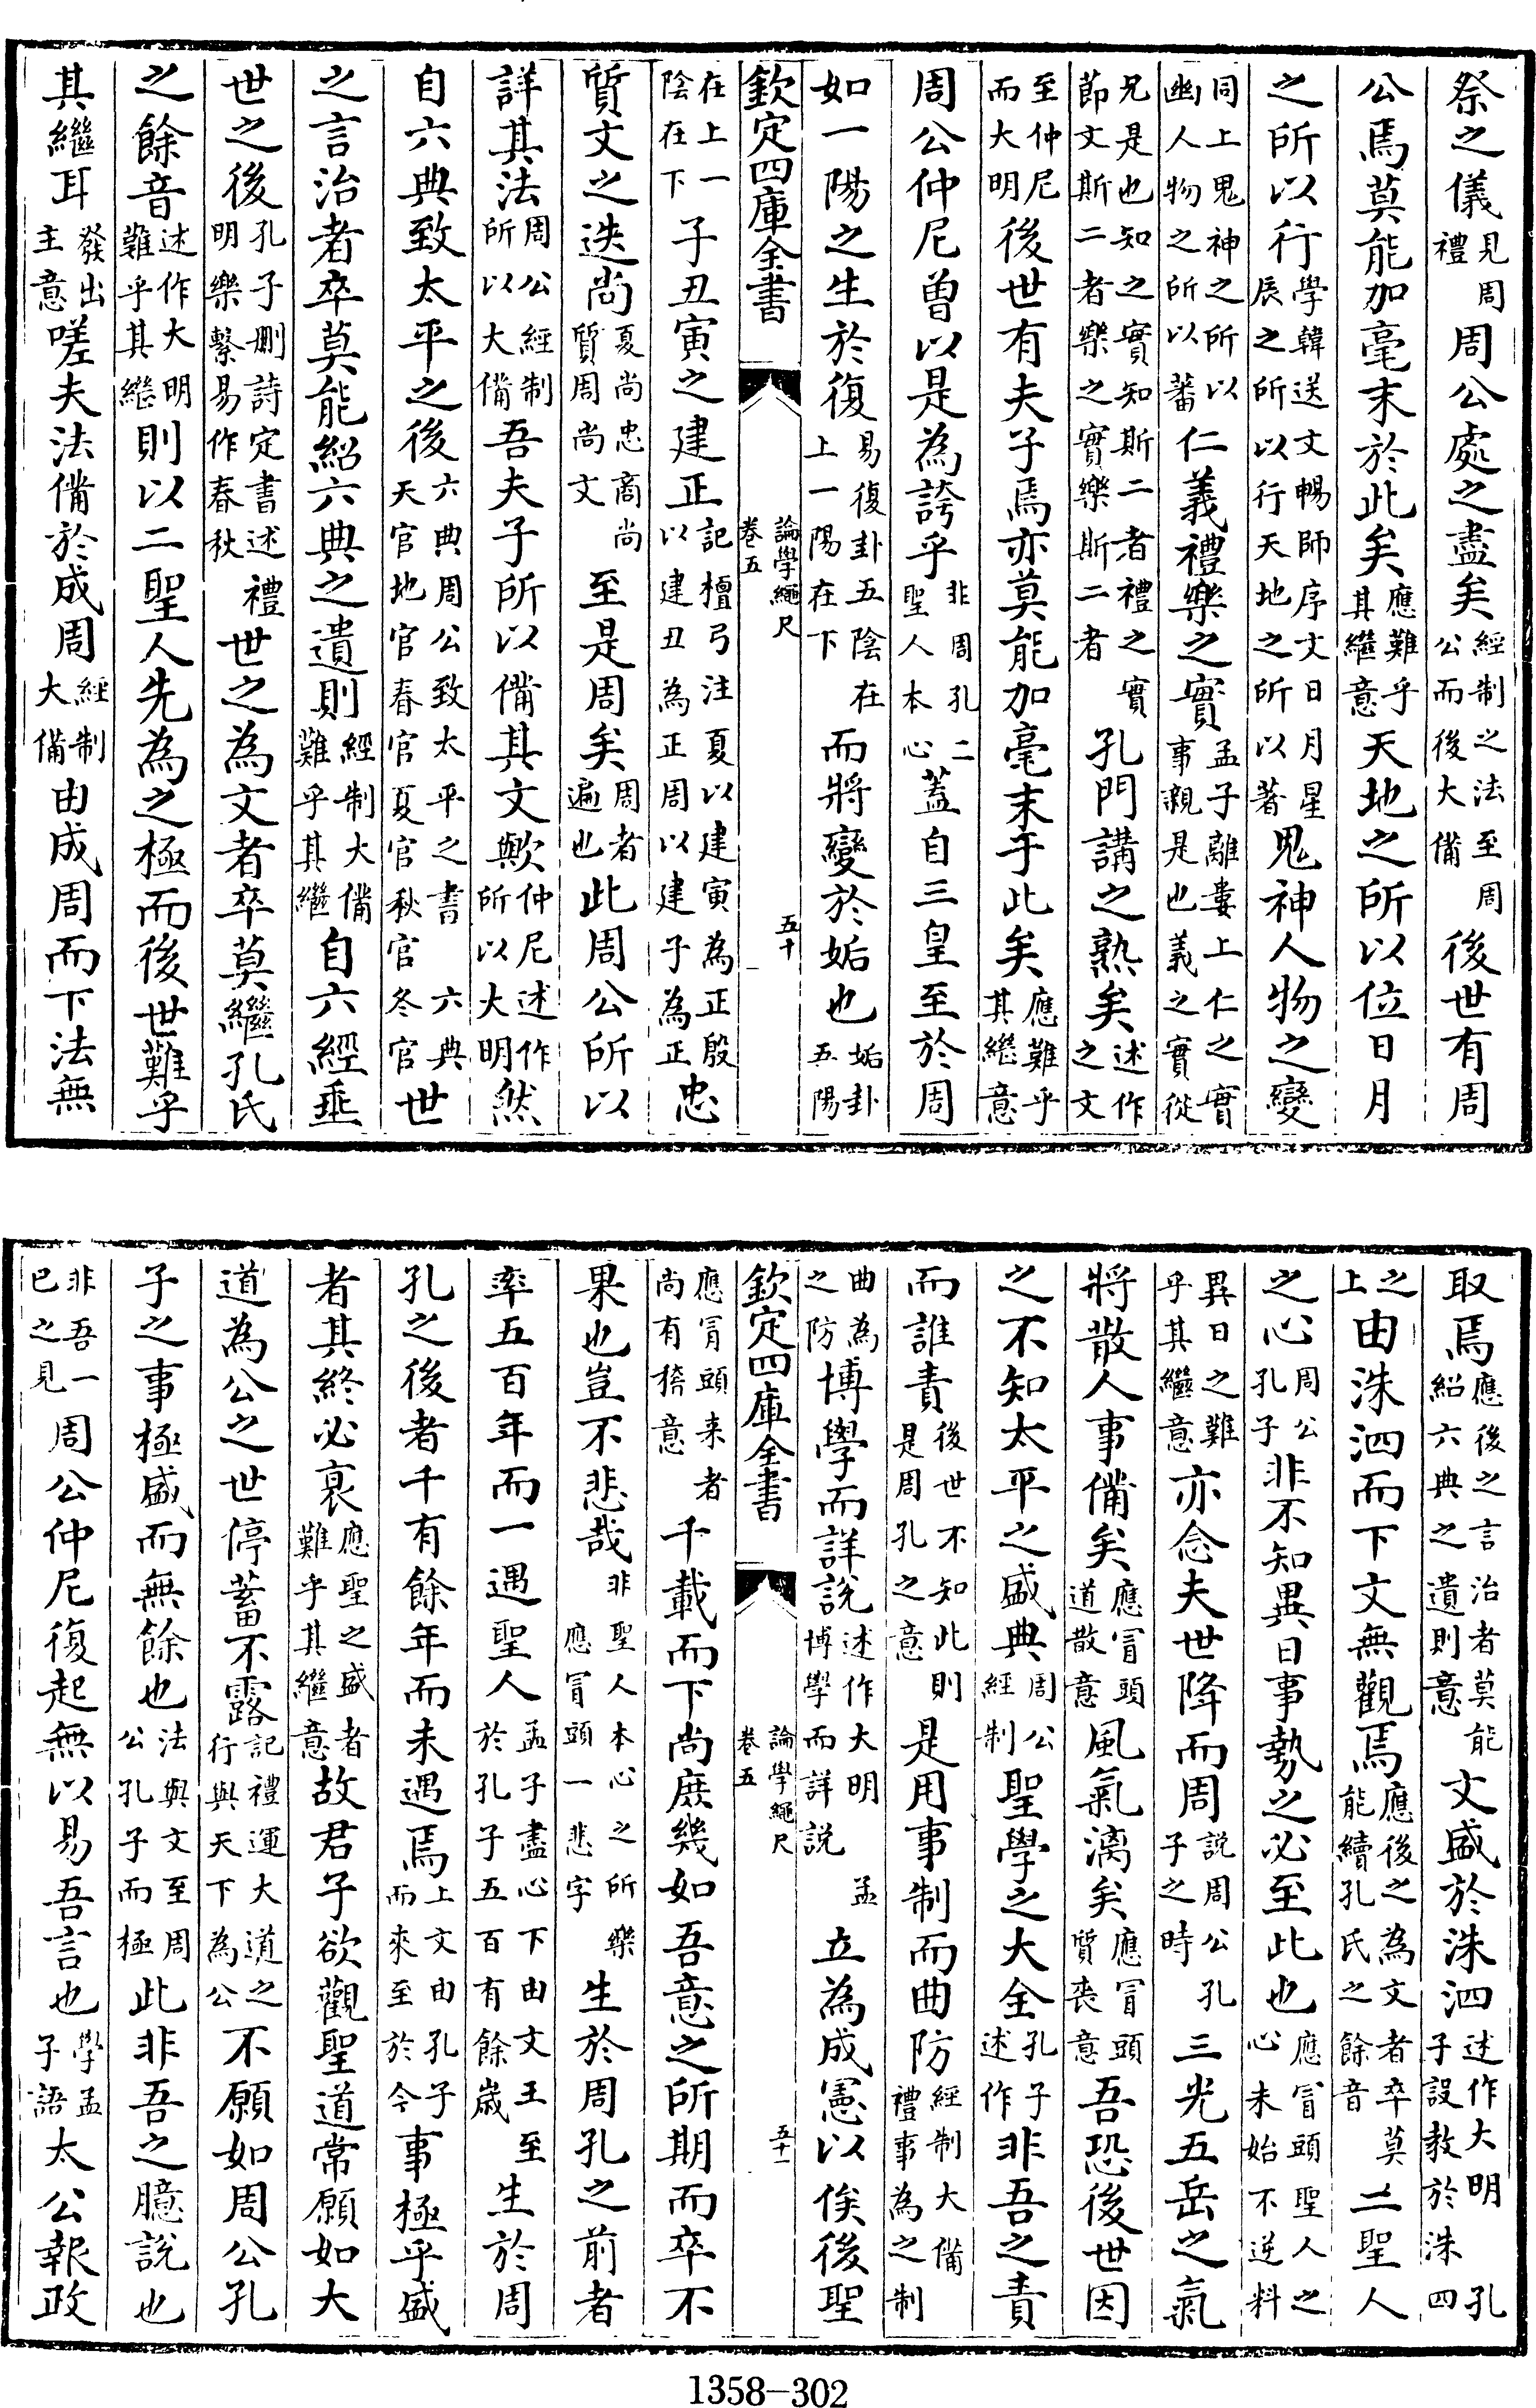 祭之儀見周禮周公處之盡矣經制之法至周公而後大備後世有周
公焉莫能加毫末於此矣應難乎其繼意天地之所以位日月
之所以行學韓送文暢師序文日月星辰之所以行天地之所以著鬼神人物之變
同上鬼神之所以幽人物之所以蕃仁義禮樂之實孟子離婁上仁之實事親是也義之實從
兄是也知之實知斯二者禮之實節文斯二者樂之實樂斯二者孔門講之熟矣述作之文
至仲尼而大明後世有夫子焉亦莫能加毫末于此矣應難乎其繼意
周公仲尼曾以是為誇乎非周孔二聖人本心蓋自三皇至於周
如一陽之生於復易復卦五陰在上一陽在下而將變於姤也姤卦五陽
欽定四庫全書 論學繩尺卷五 五十
在上一陰在下子丑寅之建正記檀弓注夏以建寅為正殷以建丑為正周以建子為正忠
質文之迭尚夏尚忠商尚質周尚文至是周矣周者遍也此周公所以
詳其法周公經制所以大備吾夫子所以備其文歟仲尼述作所以大明然
自六典致太平之後六典周公致太平之書六典天官地官春官夏官秋官冬官世
之言治者卒莫能紹六典之遺則經制大備難乎其繼自六經垂
世之後孔子刪詩定書述禮明樂繫易作春秋世之為文者卒莫繼孔氏
之餘音述作大明難乎其繼則以二聖人先為之極而後世難乎
其繼耳發出主意嗟夫法備於成周經制大備由成周而下法無
取焉應後之言治者莫能紹六典之遺則意文盛於洙泗述作大明孔子設教於洙四
之上由洙泗而下文無觀焉應後之為文者卒莫能續孔氏之餘音二聖人
之心周公孔子非不知異日事勢之必至此也應冒頭聖人之心未始不逆料
異日之難乎其繼意亦念夫世降而周說周公孔子之時三光五岳之氣
將散人事備矣應冒頭道散意風氣漓矣應冒頭質喪意吾恐後世因
之不知太平之盛典周公經制聖學之大全孔子述作非吾之責
而誰責後世不知此則是周孔之意是用事制而曲防經制大備禮事為之制
曲為之防博學而詳說述作大明孟博學而詳說立為成憲以俟後聖
欽定四庫全書 論學繩尺卷五 五十一
應冒頭来者尚有稽意千載而下尚庶幾如吾意之所期而卒不
果也豈不悲哉非聖人本心之所樂應冒頭一悲字生於周孔之前者
率五百年而一遇聖人孟子盡心下由文王至於孔子五百有餘歲生於周
孔之後者千有餘年而未遇焉上文由孔子而來至於今事極乎盛
者其終必衰應聖之盛者難乎其繼意故君子欲觀聖道常願如大
道為公之世停蓄不露記禮運大道之行與天下為公不願如周公孔
子之事極盛而無餘也法與文至周公孔子而極此非吾之臆說也
非吾一已之見周公仲尼復起無以易吾言也學孟子語太公報政
1358-302